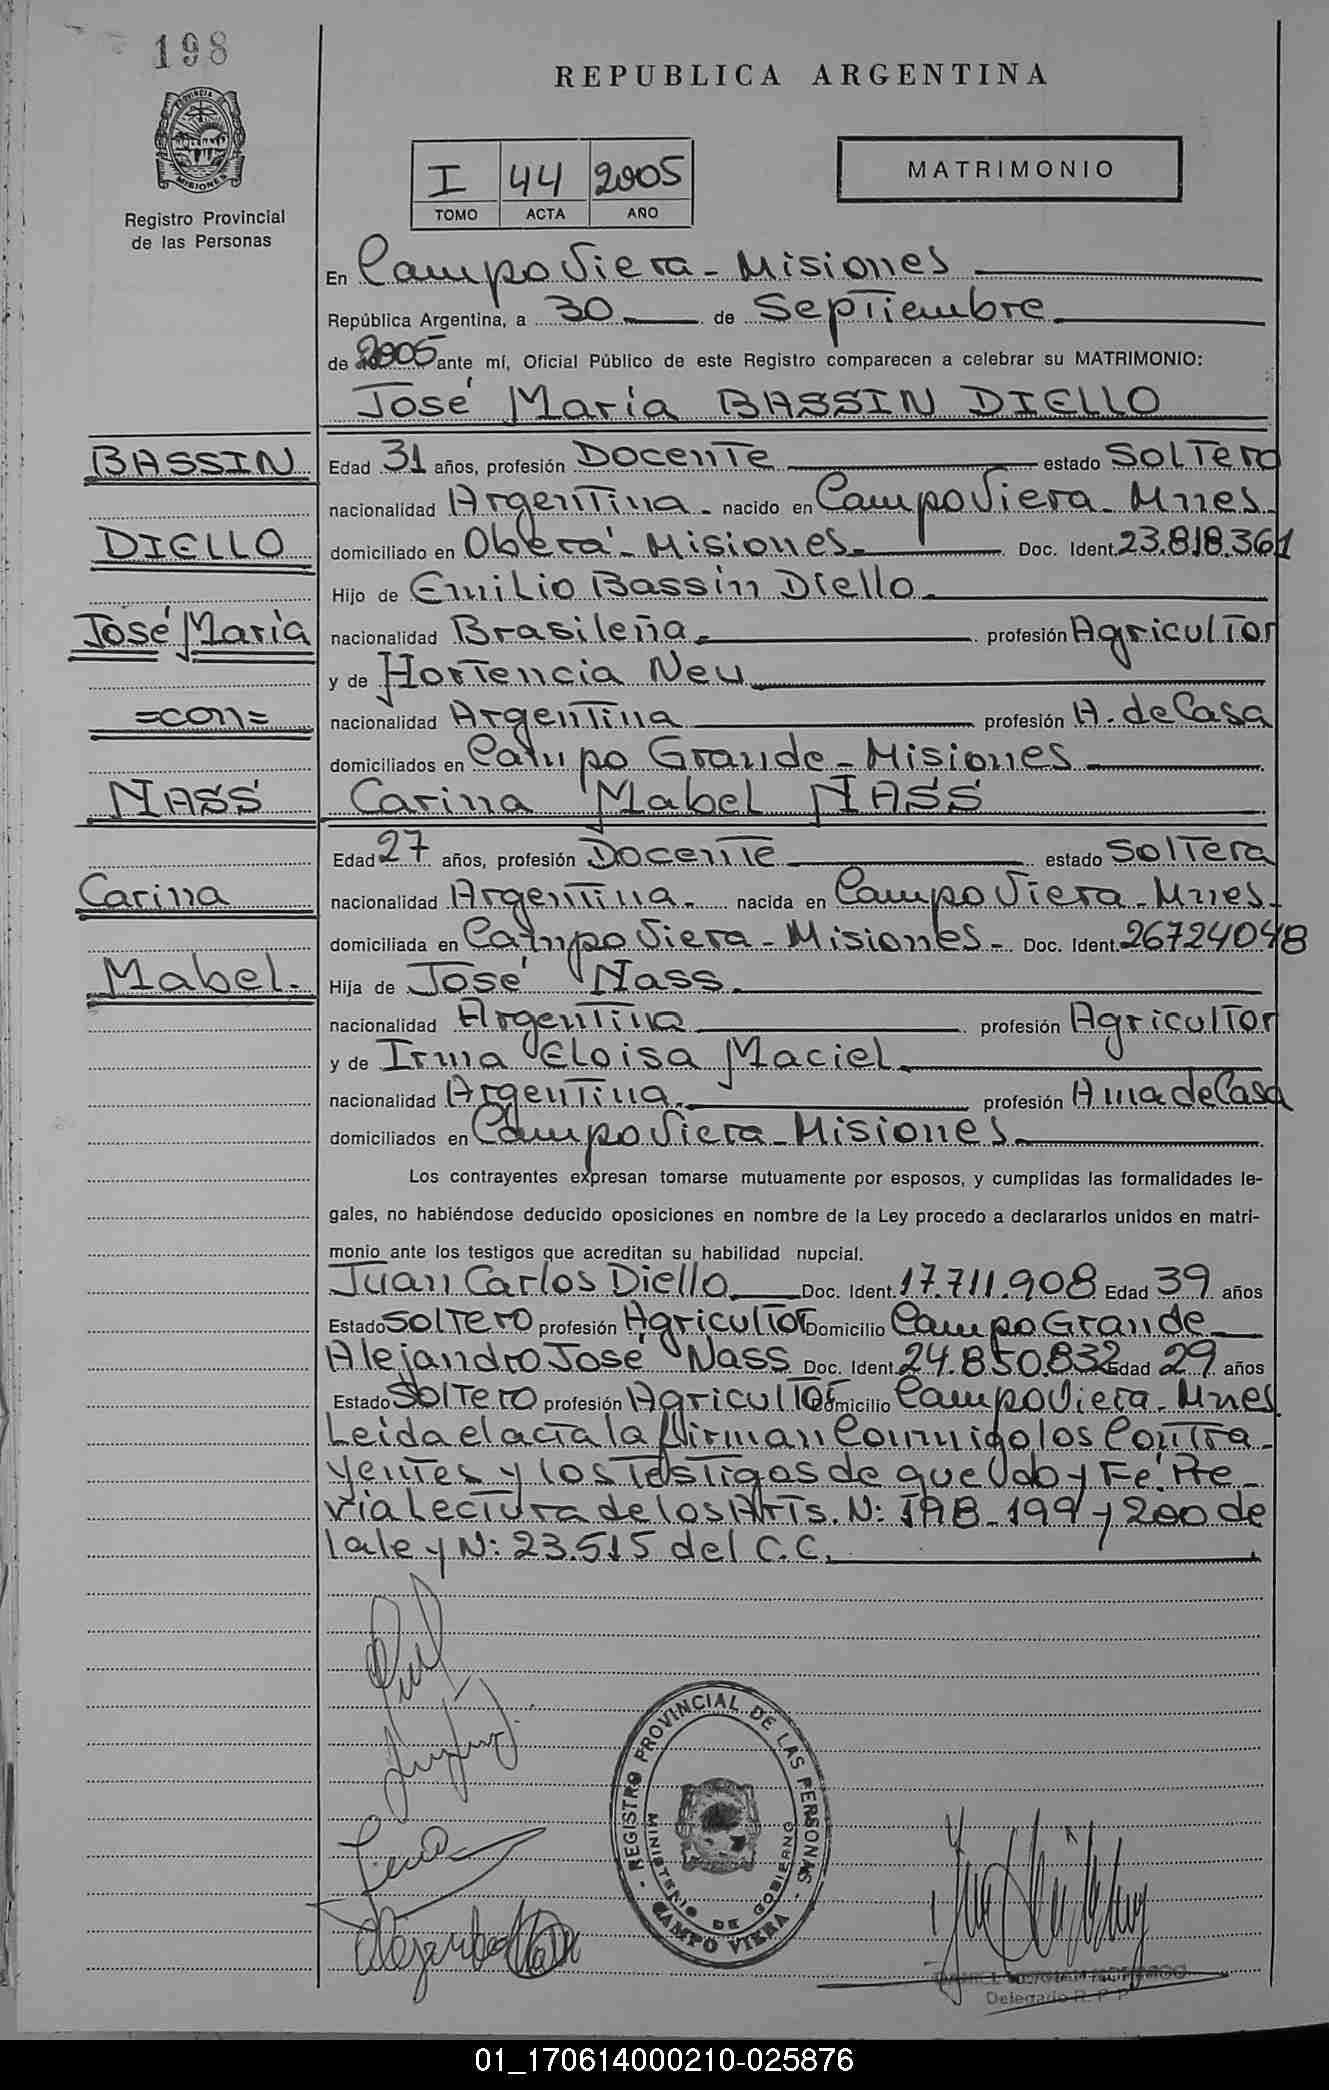 198
REPUBLICA ARGENTINA
PROVINCIA DE MISIONES
Registro Provincial
de las Personas
I 44 2005
TOMO ACTA AÑO
MATRIMONIO
En Campo Viera - Misiones
República Argentina, a 30 de Septiembre
de 2005 ante mí, Oficial Público de este Registro comparecen a celebrar su MATRIMONIO:
José María BASSIN DIELLO
BASSIN
Edad 31 años, profesión Docente estado Soltero
nacionalidad Argentina - nacido en Campo Viera - Mnes.
DIELLO
domiciliado en Oberá - Misiones - Doc. Ident. 23.818.361
Hijo de Emilio Bassin Diello.
José María
nacionalidad Brasileña. profesión Agricultor
y de Hortencia Neu
=con=
nacionalidad Argentina profesión A. de Casa
domiciliados en Campo Grande - Misiones
NASS
Carina Mabel NASS
Edad 27 años, profesión Docente estado Soltera
Carina
nacionalidad Argentina. nacida en Campo Viera - Mnes.
domiciliada en Campo Viera - Misiones - Doc. Ident. 26724048
Mabel.
Hija de José Nass.
nacionalidad Argentina profesión Agricultor
y de Irma Eloisa Maciel.
nacionalidad Argentina. profesión Ama de Casa
domiciliados en Campo Viera - Misiones.
Los contrayentes expresan tomarse mutuamente por esposos, y cumplidas las formalidades le-
gales, no habiéndose deducido oposiciones en nombre de la Ley procedo a declararlos unidos en matri-
monio ante los testigos que acreditan su habilidad nupcial.
Juan Carlos Diello Doc. Ident. 17.711.908 Edad 39 años
Estado Soltero profesión Agricultor Domicilio Campo Grande
Alejandro José Nass Doc. Ident. 24.850.832 Edad 29 años
Estado Soltero profesión Agricultor Domicilio Campo Viera - Mnes
Leida el acta la Firman Conmigo los Contra-
yentes y los Testigos de que Doy Fé. Pre-
via Lectura de los Arts. N: 198 - 199 y 200 de
la ley N: 23.515 del C.C.
REGISTRO PROVINCIAL DE LAS PERSONAS
MINISTERIO DE GOBIERNO
CAMPO VIERA
Delegado R. P. P.
01_170614000210-025876